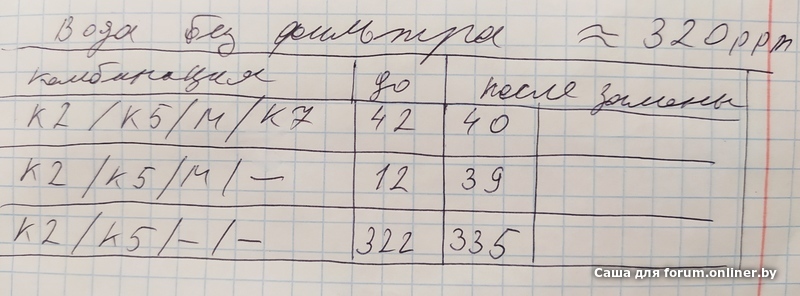 Вода без фильтра ≈ 320ppm
комбинация до после замены
К2/К5/М/К7 42 40
К2/К5/М/— 12 39
К2/К5/—/— 322 335
Саша для forum.onliner.by